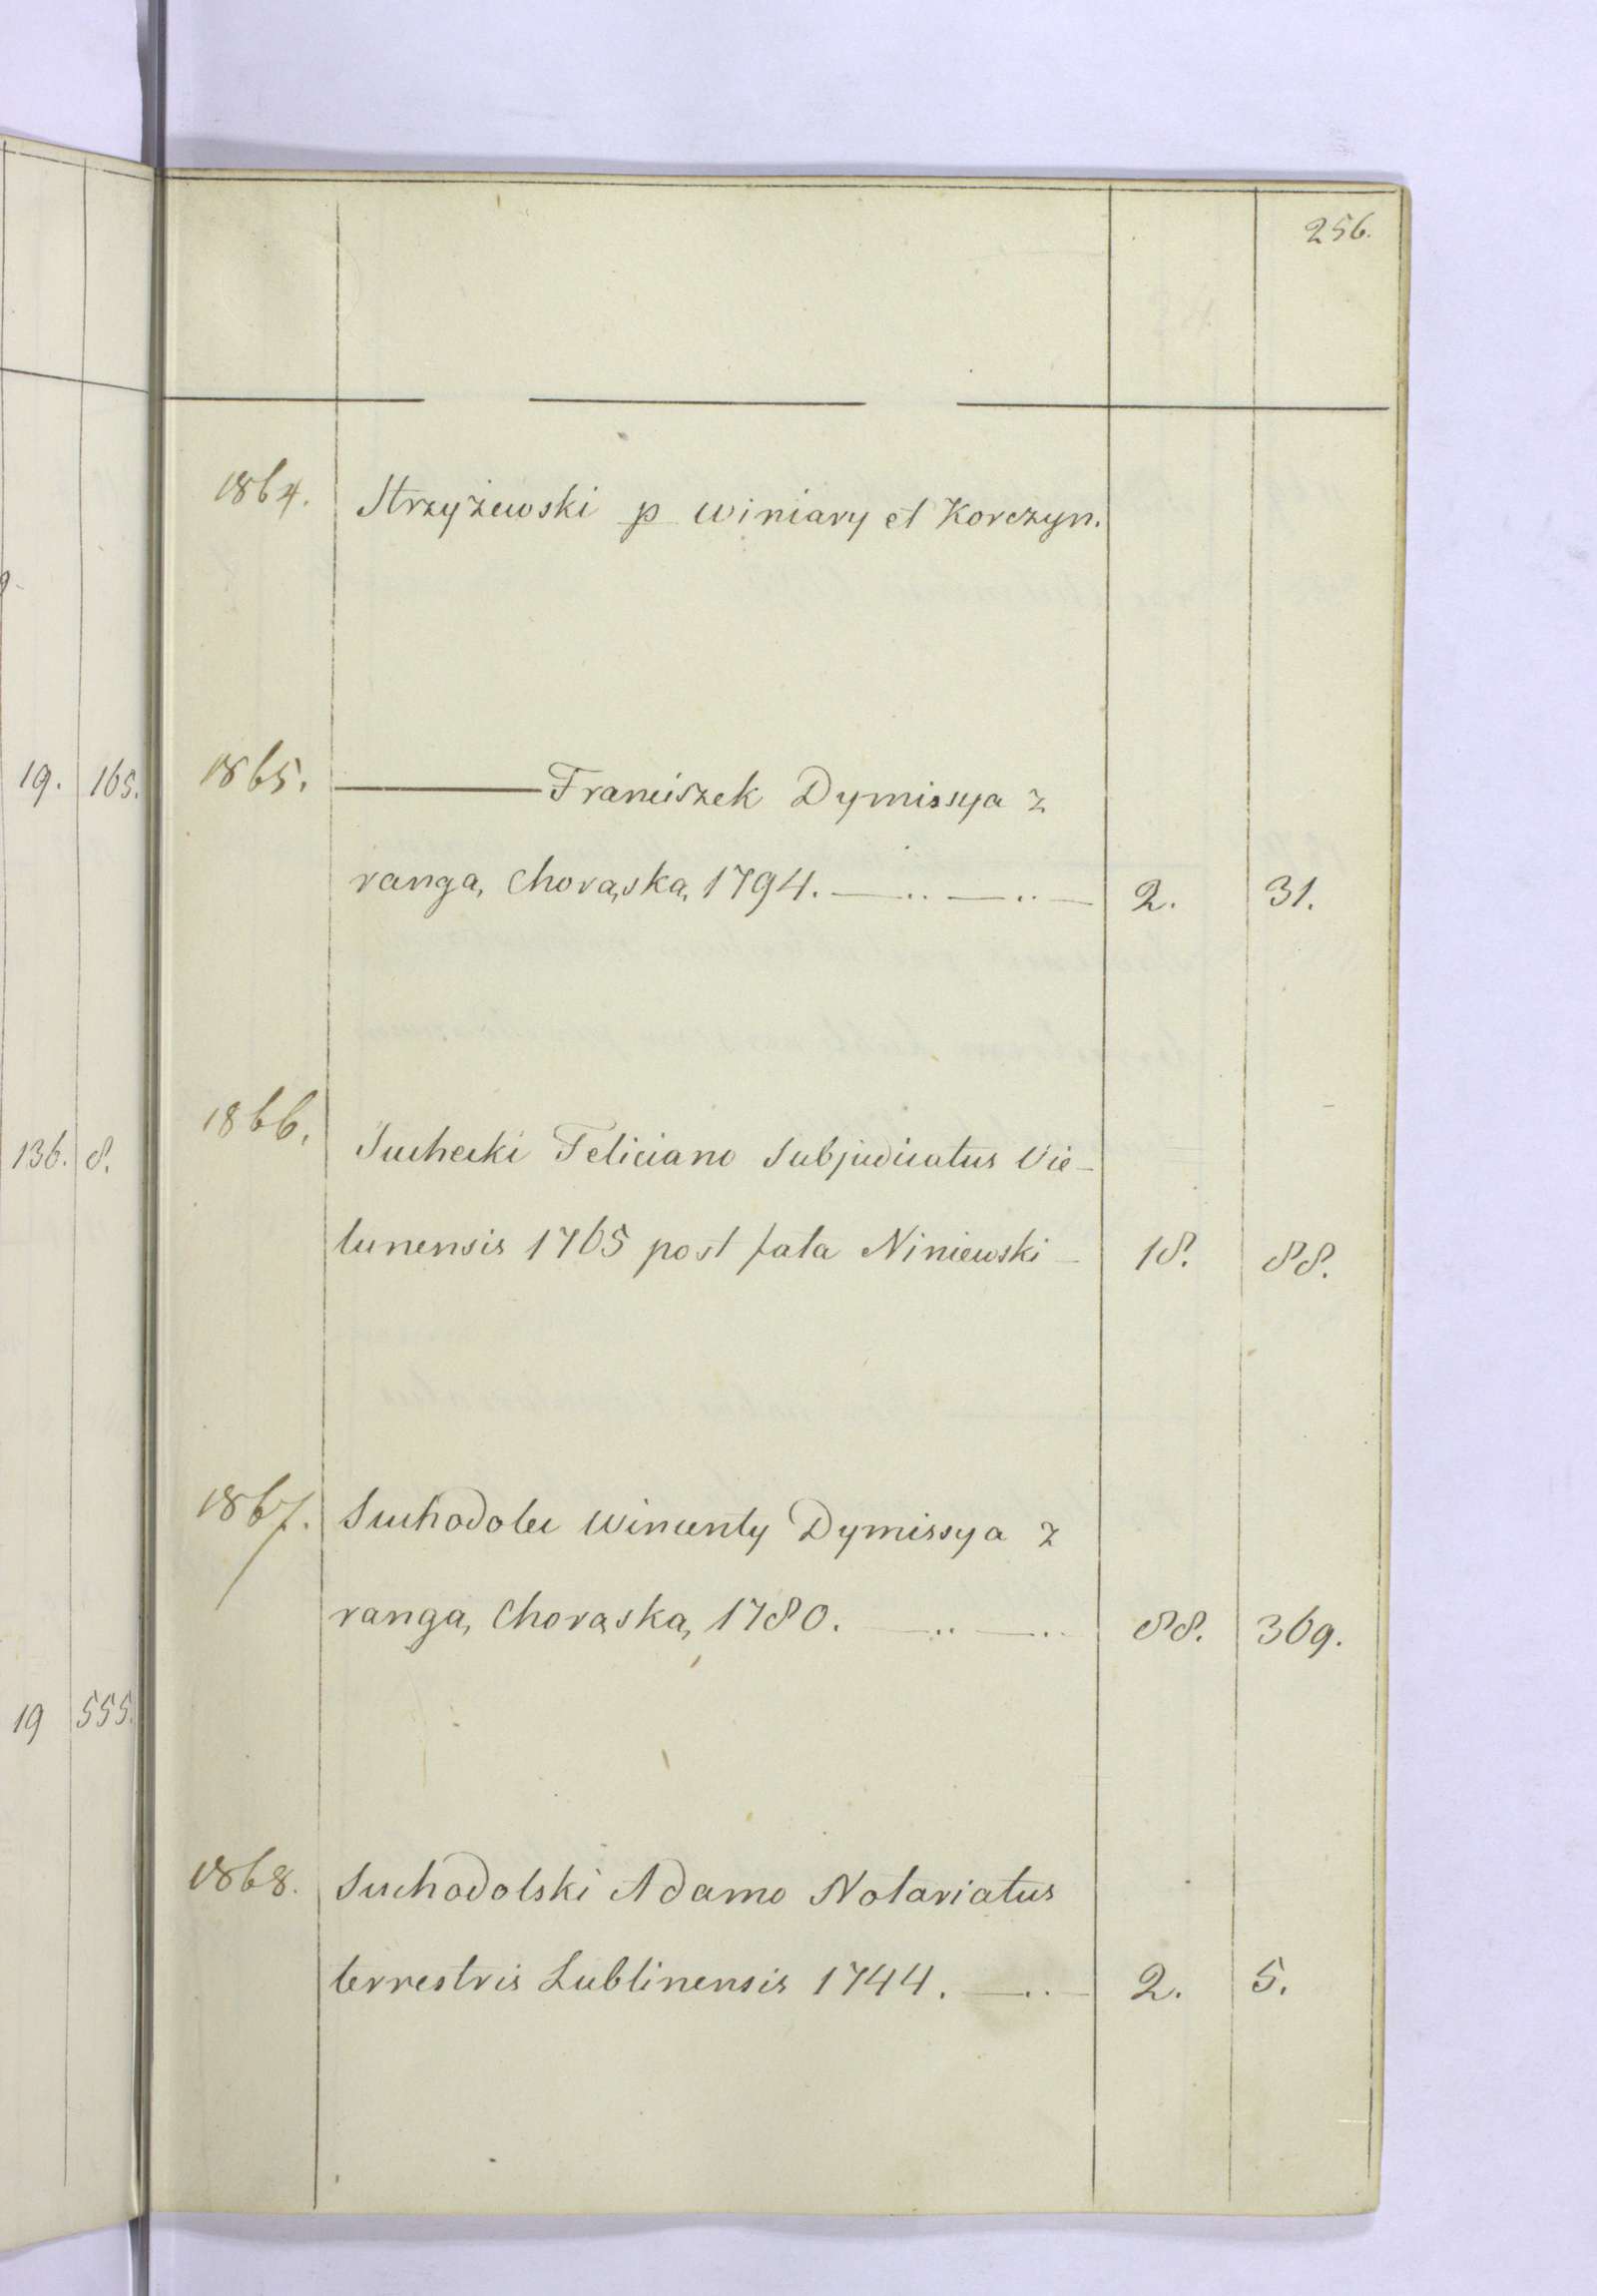 256.
1864. Strzyżewski p Winiary et Korczyn.
1865. ——— Franciszek Dymissya z
rangą Chorąską 1794. —..—..— 2. 31.
1866. Suchecki Feliciano Subjudicatus Vie-
lunensis 1765 post fata Niniewski — 18. 88.
1867. Suchodolec Wincenty Dymissya z
rangą Chorąską 1780. —..—.. 88. 369.
1868. Suchodolski Adamo Notariatus
terrestris Lublinensis 1744. —..— 2. 5.
19. 165.
136. 8.
19 555.